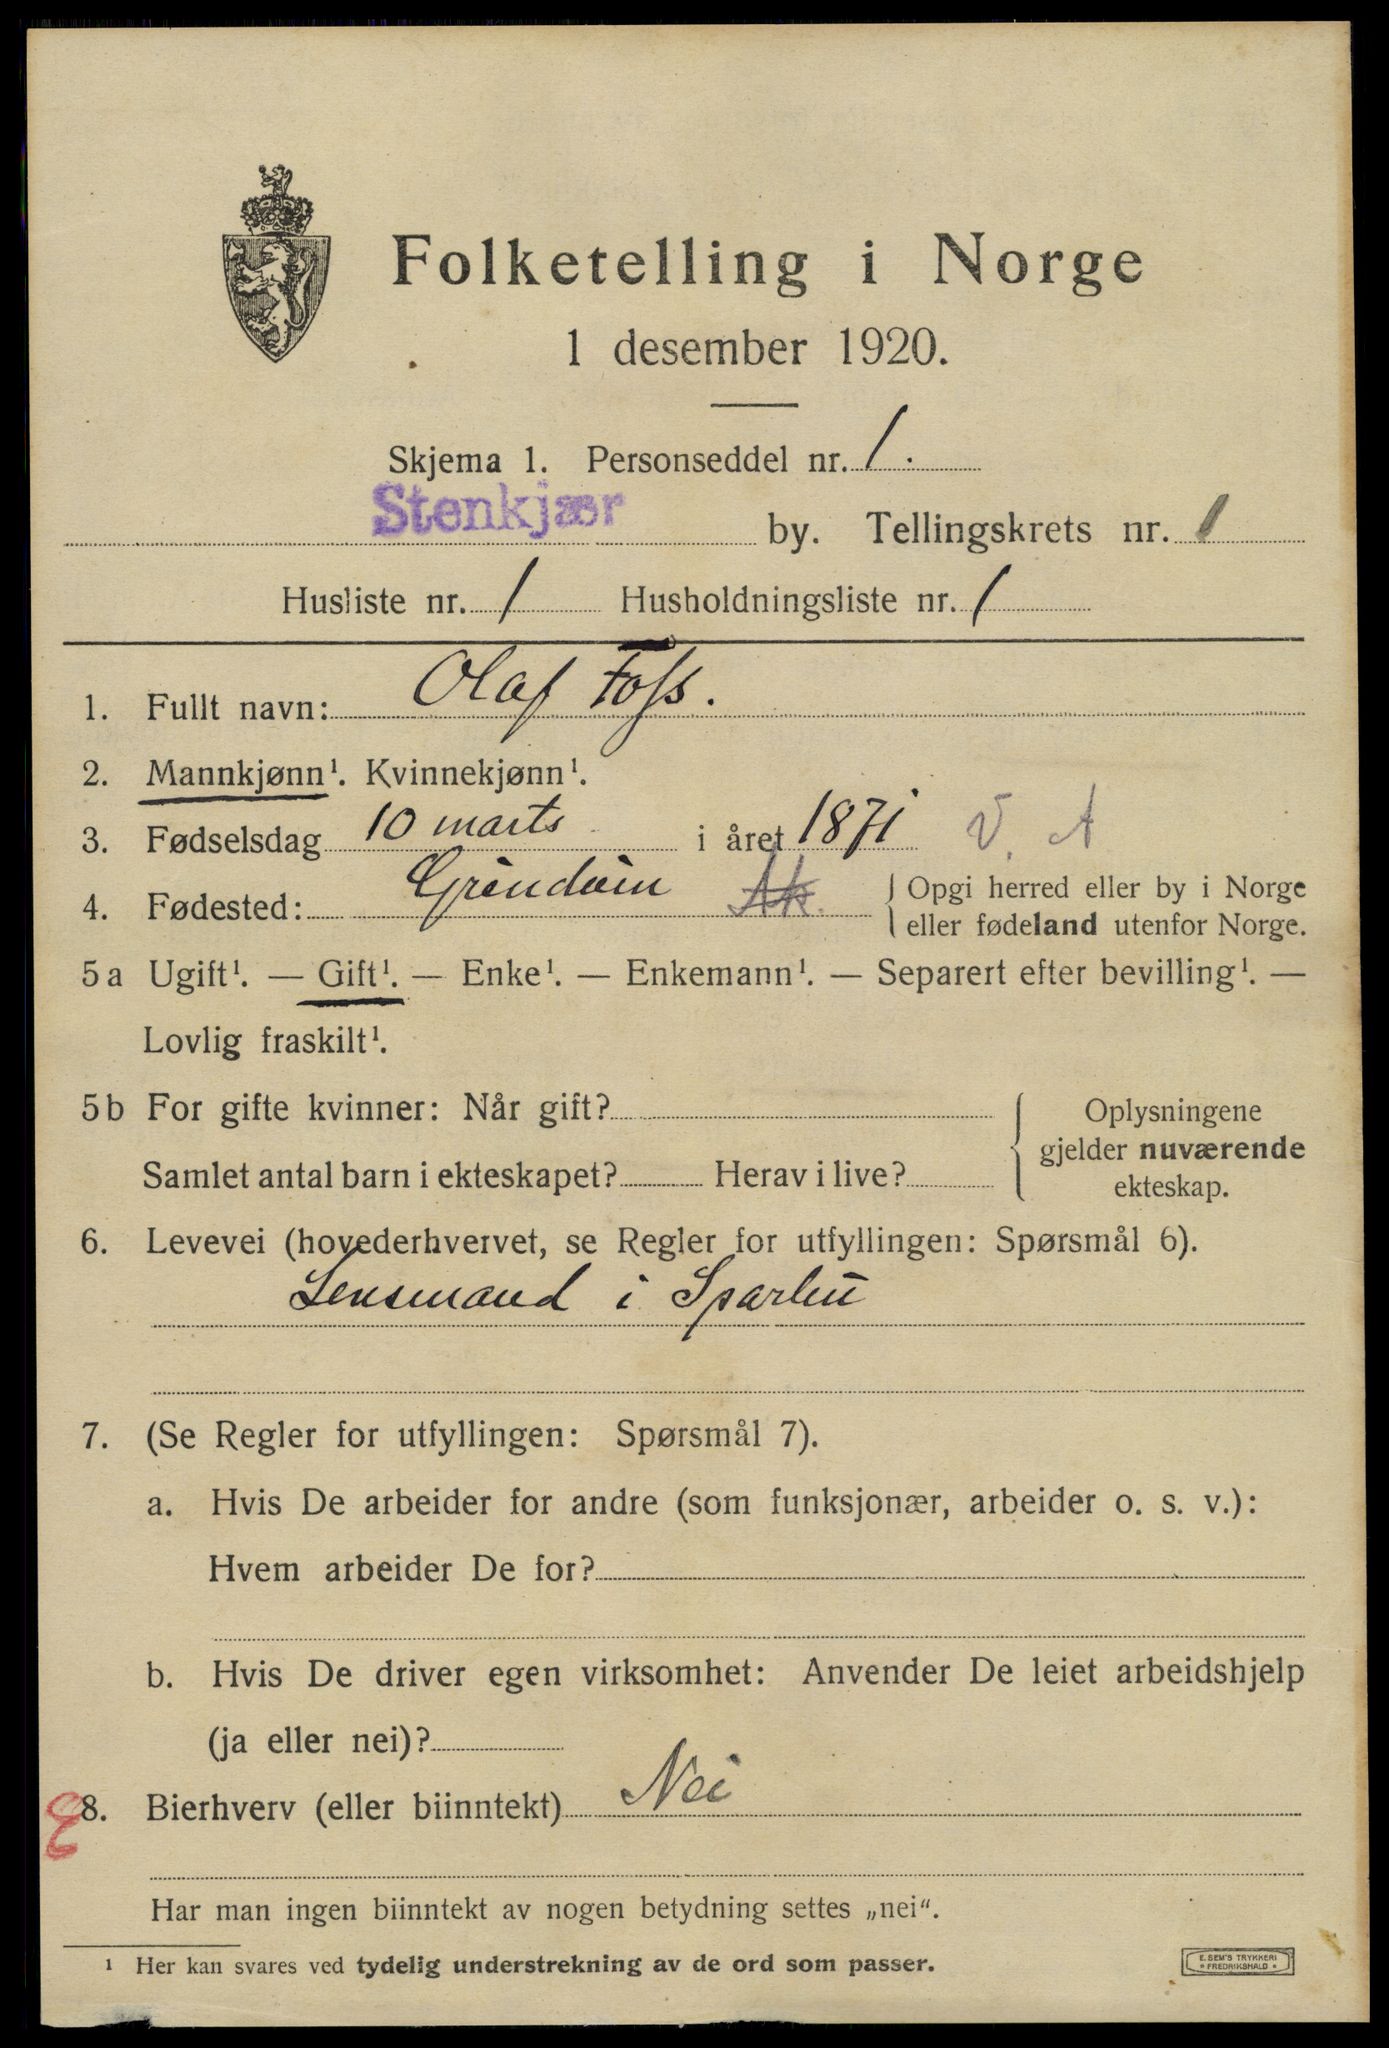 Folketelling i Norge
1 desember 1920.
Skjema 1. Personseddel nr. 1.
Stenkjær by. Tellingskrets nr. 1
Husliste nr. 1 Husholdningsliste nr. 1
1. Fullt navn: Olaf Foss.
2. Mannkjønn¹. Kvinnekjønn¹.
3. Fødselsdag 10 marts i året 1871 V. A
4. Fødested: Ak. { Opgi herred eller by i Norge
eller fødeland utenfor Norge.
5 a Ugift¹. — Gift¹. — Enke¹. — Enkemann¹. — Separert efter bevilling¹. —
Lovlig fraskilt¹.
5 b For gifte kvinner: Når gift?
Samlet antal barn i ekteskapet? Herav i live?
Oplysningene
gjelder nuværende
ekteskap.
6. Levevei (hovederhvervet, se Regler for utfyllingen: Spørsmål 6).
Lensmand i Sparbu
7. (Se Regler for utfyllingen: Spørsmål 7).
a. Hvis De arbeider for andre (som funksjonær, arbeider o. s. v.):
Hvem arbeider De for?
b. Hvis De driver egen virksomhet: Anvender De leiet arbeidshjelp
(ja eller nei)?
8. Bierhverv (eller biinntekt) Nei
Har man ingen biinntekt av nogen betydning settes „nei“.
¹ Her kan svares ved tydelig understrekning av de ord som passer.
E. SEM'S TRYKKERI
* FREDRIKSHALD *